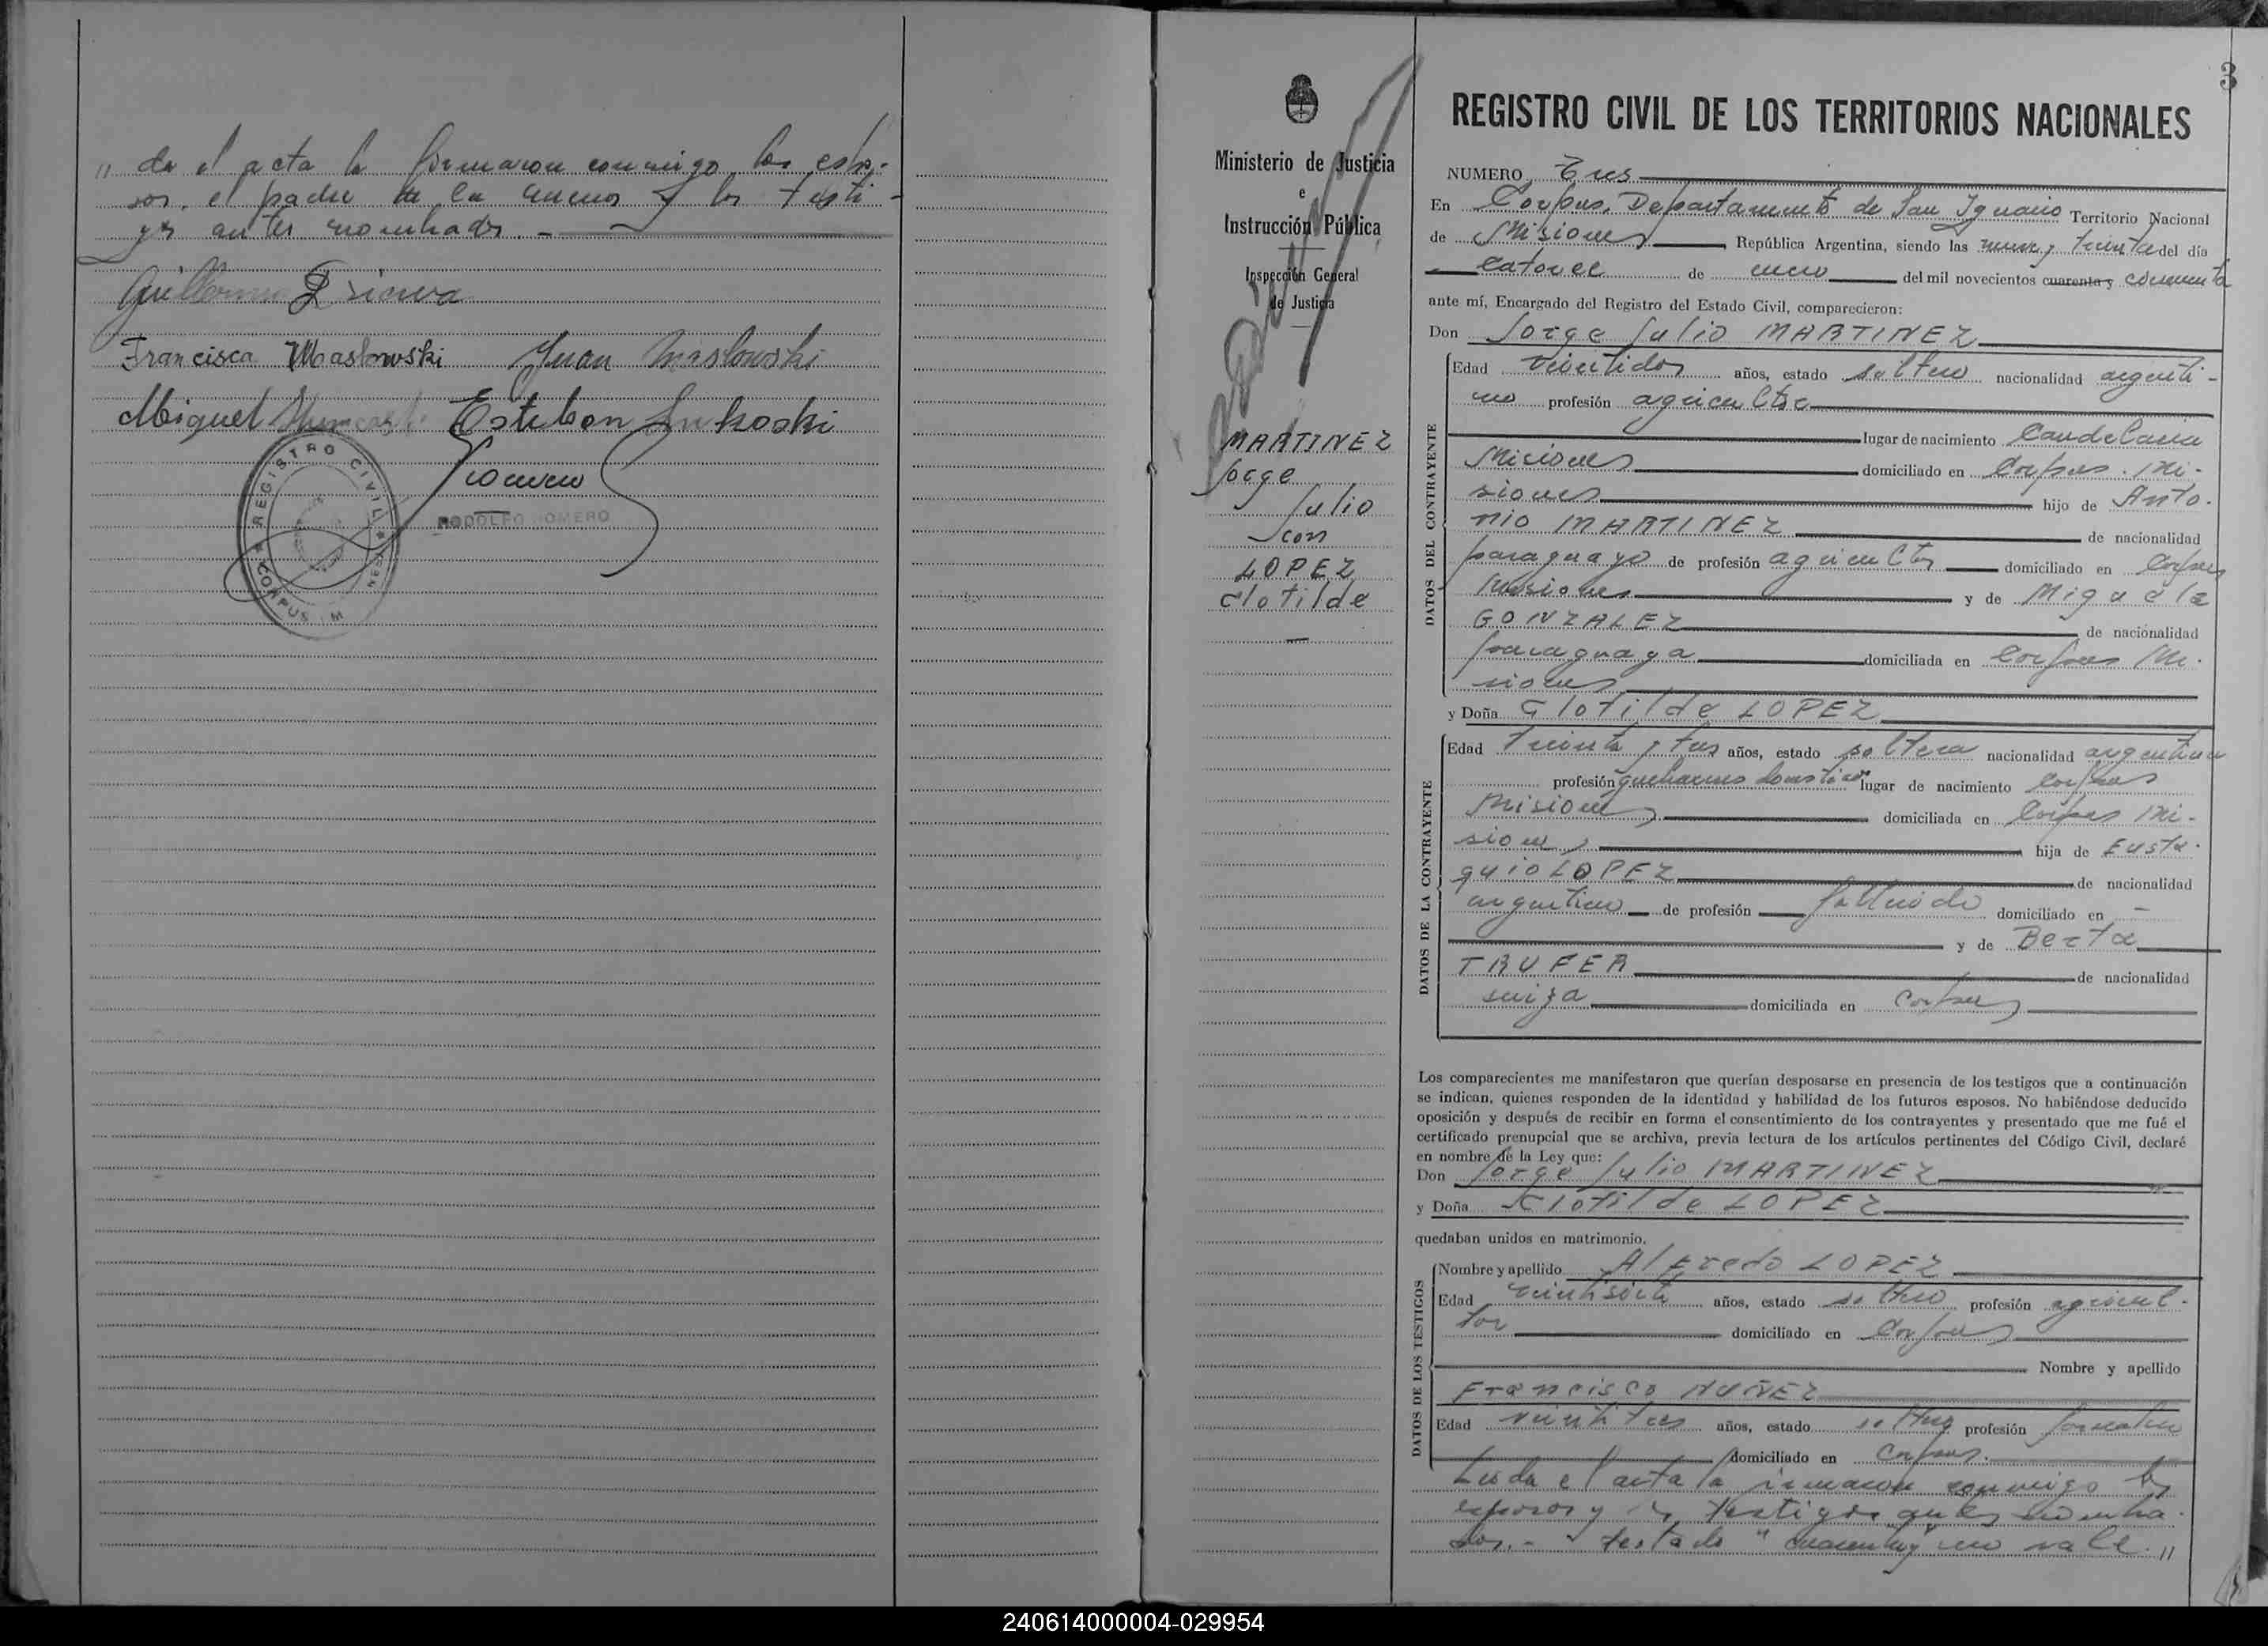 " da el acta la firmaron conmigo los espo-
sos, el padre de la menor y los testi-
gos antes nombrados. -
Guillermo
Francisca Maslowski Juan Maslowski
Miguel Esteban Lukoski
Romero
RODOLFO ROMERO
REGISTRO CIVIL
CORPUS M
Ministerio de Justicia
e
Instrucción Pública
Inspección General
de Justicia
MARTINEZ
Jorge
Julio
con
LOPEZ
Clotilde
3
REGISTRO CIVIL DE LOS TERRITORIOS NACIONALES
NUMERO Tres
En Corpus, Departamento de San Ignacio Territorio Nacional
de Misiones República Argentina, siendo las nueve y treinta del día
catorce de enero del mil novecientos cuarenta y cincuenta
ante mí, Encargado del Registro del Estado Civil, comparecieron:
Don Jorge Julio MARTINEZ
DATOS DEL CONTRAYENTE
Edad veintidos años, estado soltero nacionalidad argenti-
no profesión agricultor
lugar de nacimiento Candelaria
Misiones domiciliado en Corpus. Mi-
siones hijo de Anto-
nio MARTINEZ de nacionalidad
paraguayo de profesión agricultor domiciliado en Corpus
Misiones y de Miguela
GONZALEZ de nacionalidad
paraguaya domiciliada en Corpus Mi-
siones
y Doña Clotilde LOPEZ
DATOS DE LA CONTRAYENTE
Edad treinta y tres años, estado soltera nacionalidad argentina
profesión quehaceres domesticos lugar de nacimiento Corpus
Misiones domiciliada en Corpus Mi-
siones hija de Eusta-
quio LOPEZ de nacionalidad
argentino de profesión fallecido domiciliado en -
y de Berta
TRUFER de nacionalidad
suiza domiciliada en Corpus
Los comparecientes me manifestaron que querían desposarse en presencia de los testigos que a continuación
se indican, quienes responden de la identidad y habilidad de los futuros esposos. No habiéndose deducido
oposición y después de recibir en forma el consentimiento de los contrayentes y presentado que me fué el
certificado prenupcial que se archiva, previa lectura de los artículos pertinentes del Código Civil, declaré
en nombre de la Ley que:
Don Jorge Julio MARTINEZ
y Doña Clotilde LOPEZ
quedaban unidos en matrimonio.
DATOS DE LOS TESTIGOS
Nombre y apellido Alfredo LOPEZ
Edad veintisiete años, estado soltero profesión agricul-
tor domiciliado en Corpus
Nombre y apellido
Francisco NUÑEZ
Edad veintitres años, estado soltero profesión jornalero
domiciliado en Corpus.
Leida el acta la firmaron conmigo los
esposos y los testigos antes nombra-
dos.- testado "cuarenta y" no vale. "
240614000004-029954